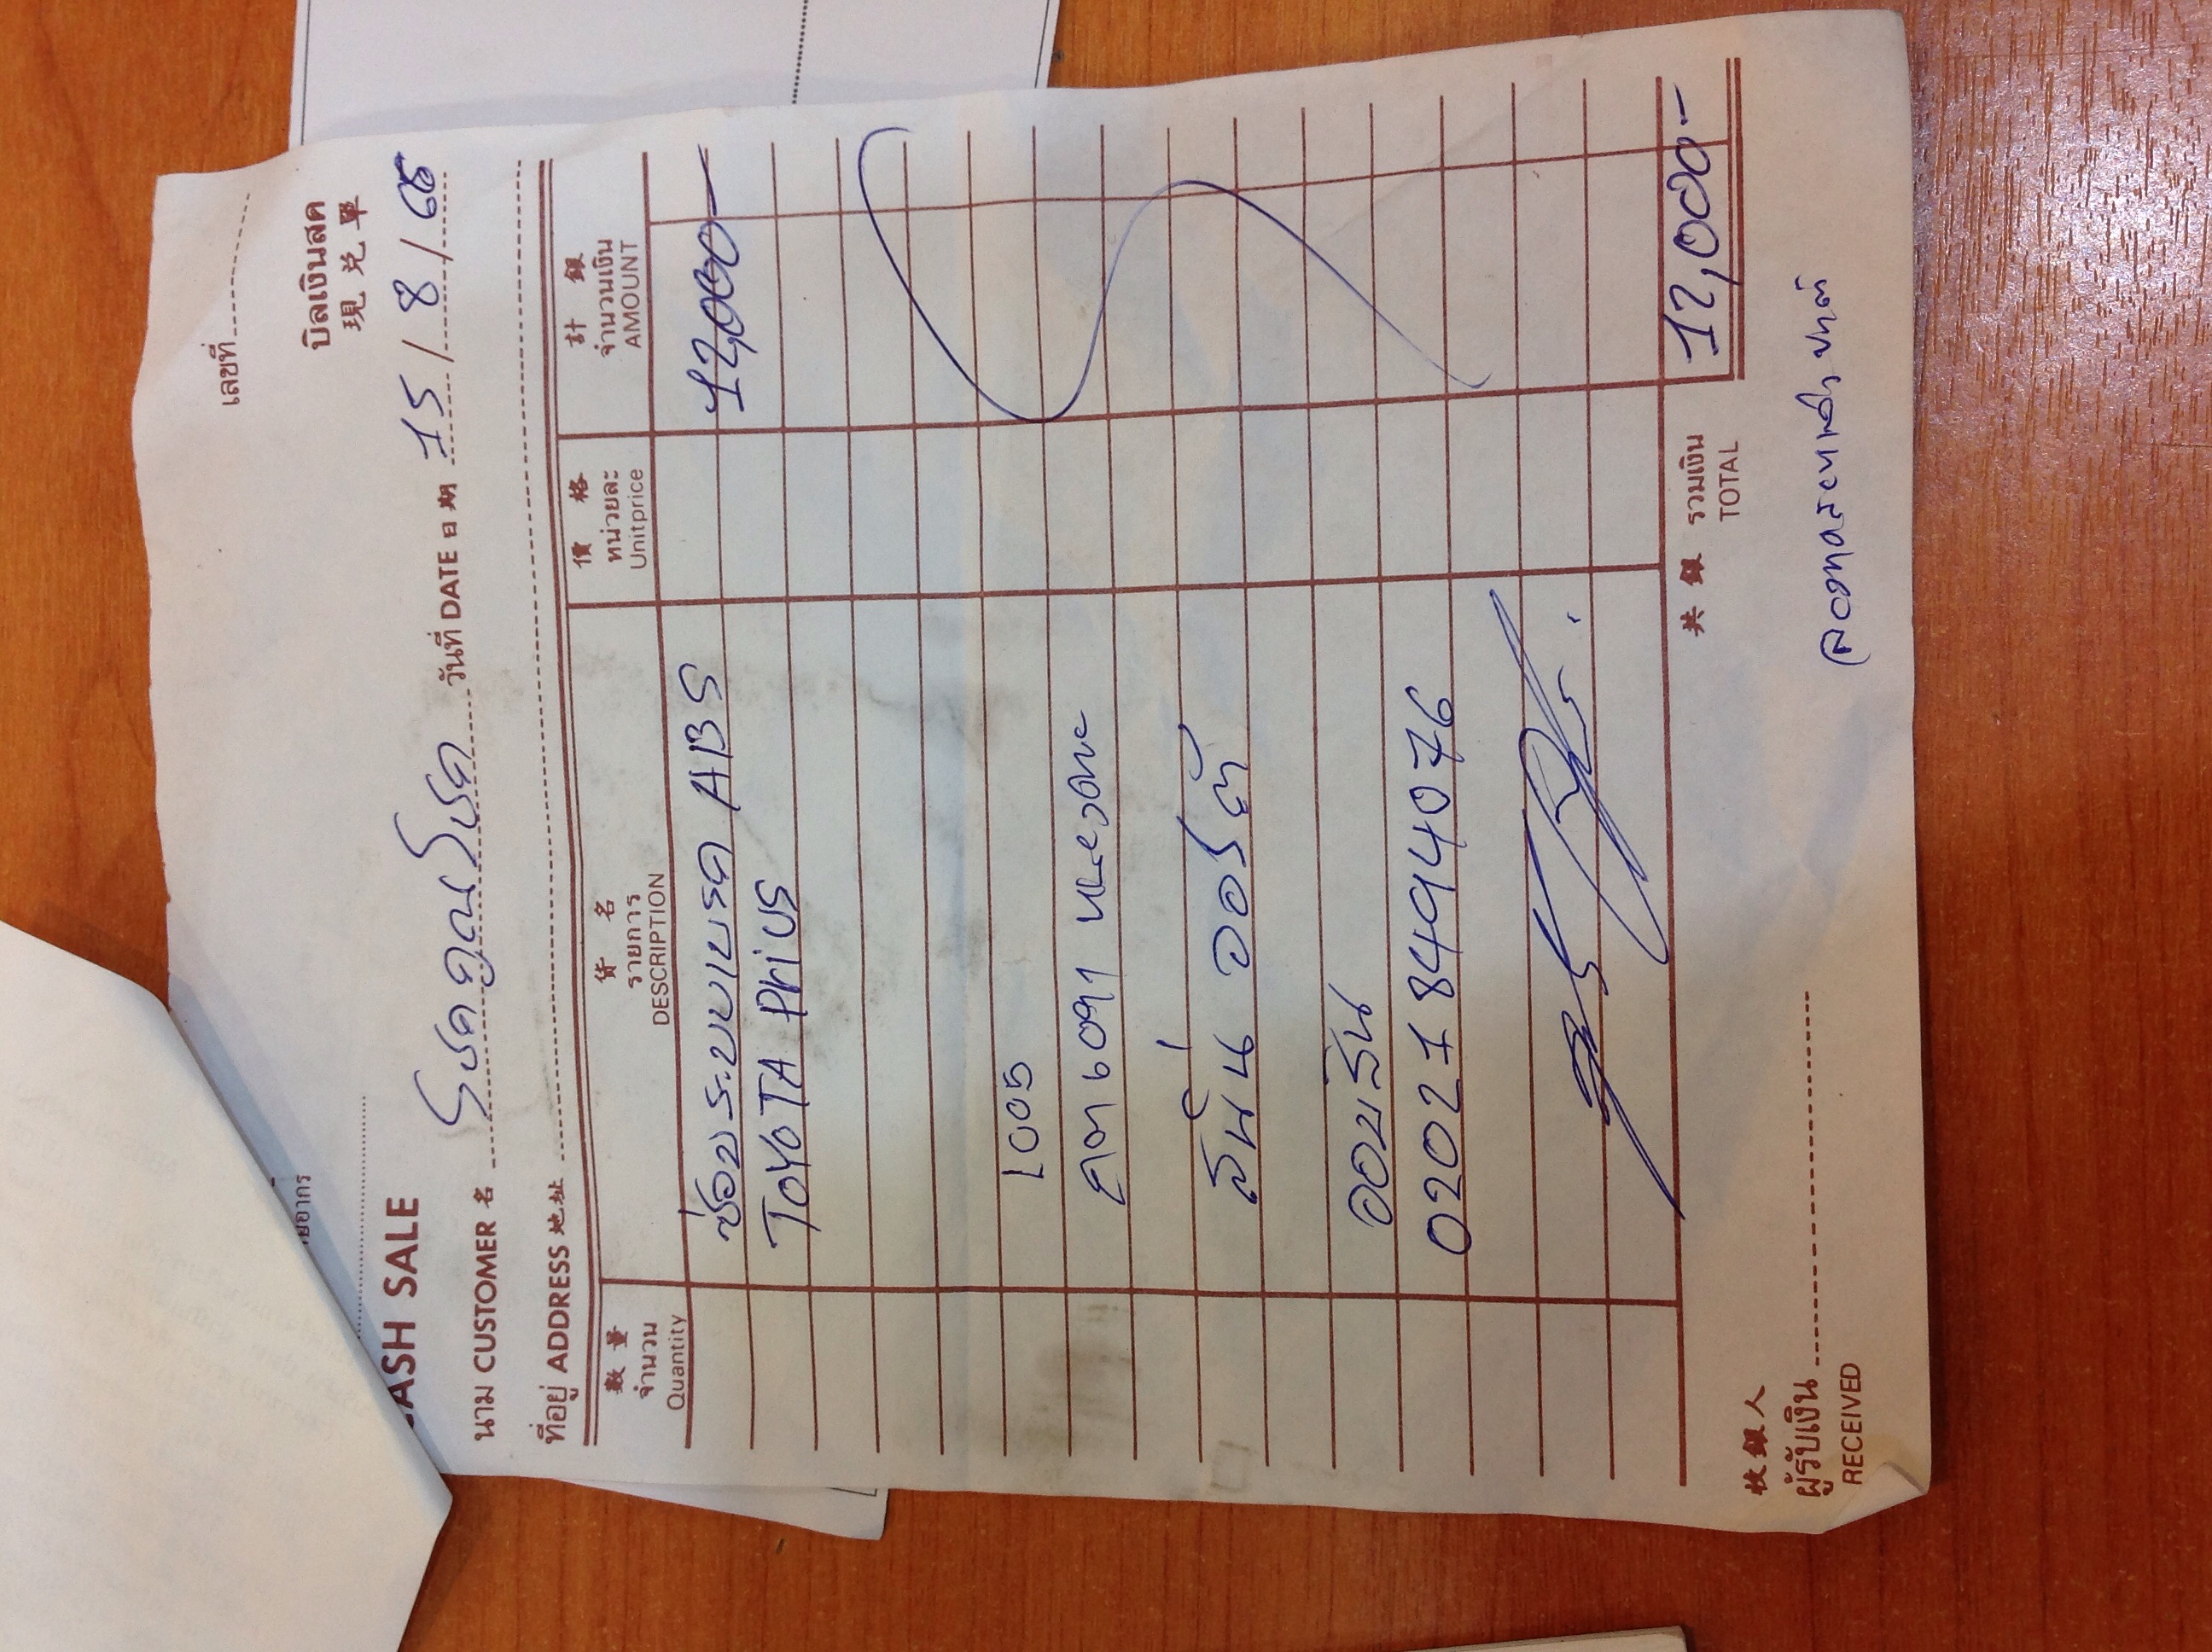 เลขที่
ยอากร
CASH SALE
บิลเงินสด
現 兑 單
นาม CUSTOMER 名 โชคคูณโชค วันที่ DATE 日期 15 / 8 / 65
ที่อยู่ ADDRESS 地址
數量 貨名 價格 計銀
จำนวน รายการ หน่วยละ จำนวนเงิน
Quantity DESCRIPTION Unitprice AMOUNT
ซ่อมระบบเบรค ABS 12,000-
TOYOTA Prius
1005
ออมสิน
020218494076
共銀 รวมเงิน 12,000-
TOTAL
收銀人
ผู้รับเงิน
RECEIVED